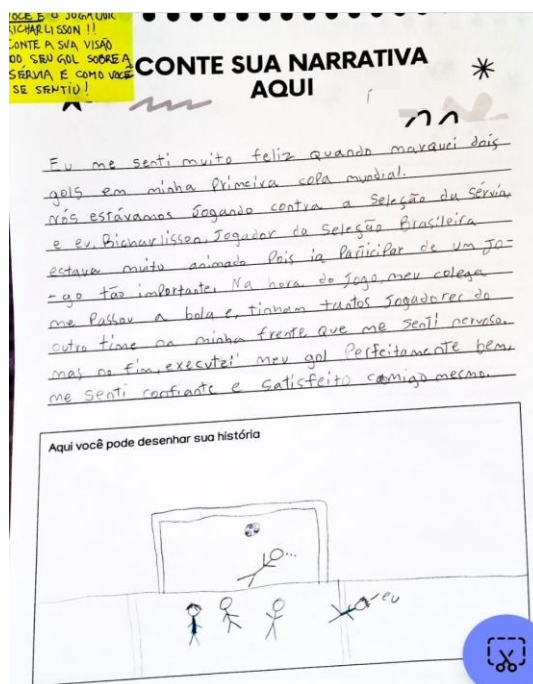 VOCÊ É O JOGADOR
RICHARLISSON !!
CONTE A SUA VISÃO
DO SEU GOL SOBRE A
SÉRVIA E COMO VOCÊ
SE SENTIU!
CONTE SUA NARRATIVA
AQUI
Eu me senti muito feliz quando marquei dois
gols em minha Primeira copa mundial.
Nós estávamos Jogando contra a Seleção da Sérvia,
e eu, Richarlisson, Jogador da Seleção Brasileira
estava muito animado Pois ia Participar de um Jo-
-go tão importante. Na hora do Jogo, meu colega
me Passou a bola e, tinham tantos Jogadores do
outro time na minha frente que me senti nervoso.
mas no fim, executei meu gol Perfeitamente bem,
me senti confiante e satisfeito comigo mesmo.
Aqui você pode desenhar sua história
eu